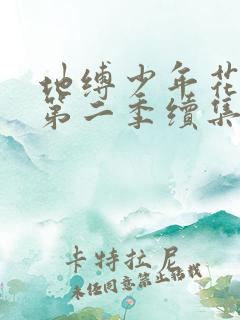 地缚少年花
第二季续集
卡特拉尼
未经同意禁止转载